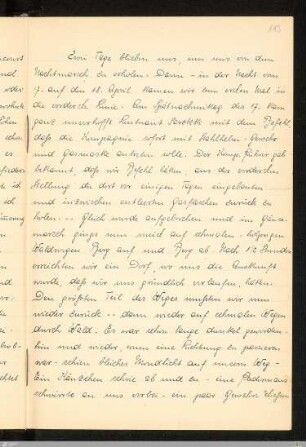 113
Zwei Tage blieben wir, um uns von dem
Nachtmarsch zu erholen. Dann - in der Nacht vom
17. auf den 18. April kamen wir zum ersten Mal in
die vorderste Linie. Am Spätnachmittag des 17. kam
ganz unverhofft Leutnant mit dem Befehl,
daß die Kompagnie sofort mit Stahlhelm, Gewehr
und Gasmaske antreten solle. Der Komp. Führer gab
bekannt, daß wir Befehl hätten, aus der vordersten
Stellung die dort vor einigen Tagen eingebauten
und inzwischen entleerten Gasflaschen zurück zu
holen. -- Gleich wurde aufgebrochen und im Gänse-
marsch gings nun auf schmalen, holprigen
Waldwegen Berg auf und Berg ab. Nach 1½ Stunden
erreichten wir ein Dorf, wo uns die Auskunft
wurde, daß wir uns gründlich verlaufen hätten.
Den größten Teil des Weges mußten wir nun
wieder zurück -- dann wieder auf schmalen Wegen
durch Wald. Es war schon lange dunkel geworden.
hin und wieder, wenn eine Lichtung zu passieren
war - schien bleiches Mondlicht auf unsern Weg -
Ein Käuzchen schrie ab und zu - eine Fledermaus
schwirrte an uns vorbei - ein paar